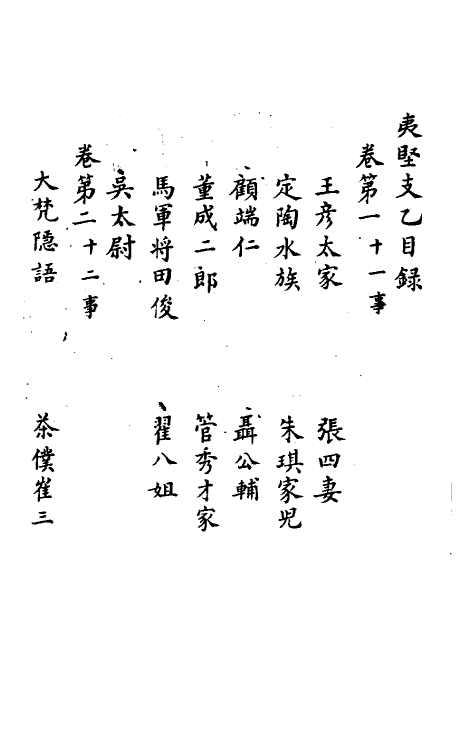 夷堅支乙目録
卷第一十一事
王彥太家　張四妻
定陶水族　朱琪家兒
顧端仁　聶公輔
董成二郎　管秀才家
馬軍將田俊　翟八姐
吳太尉
卷第二十二事
大梵隱語　茶僕崔三